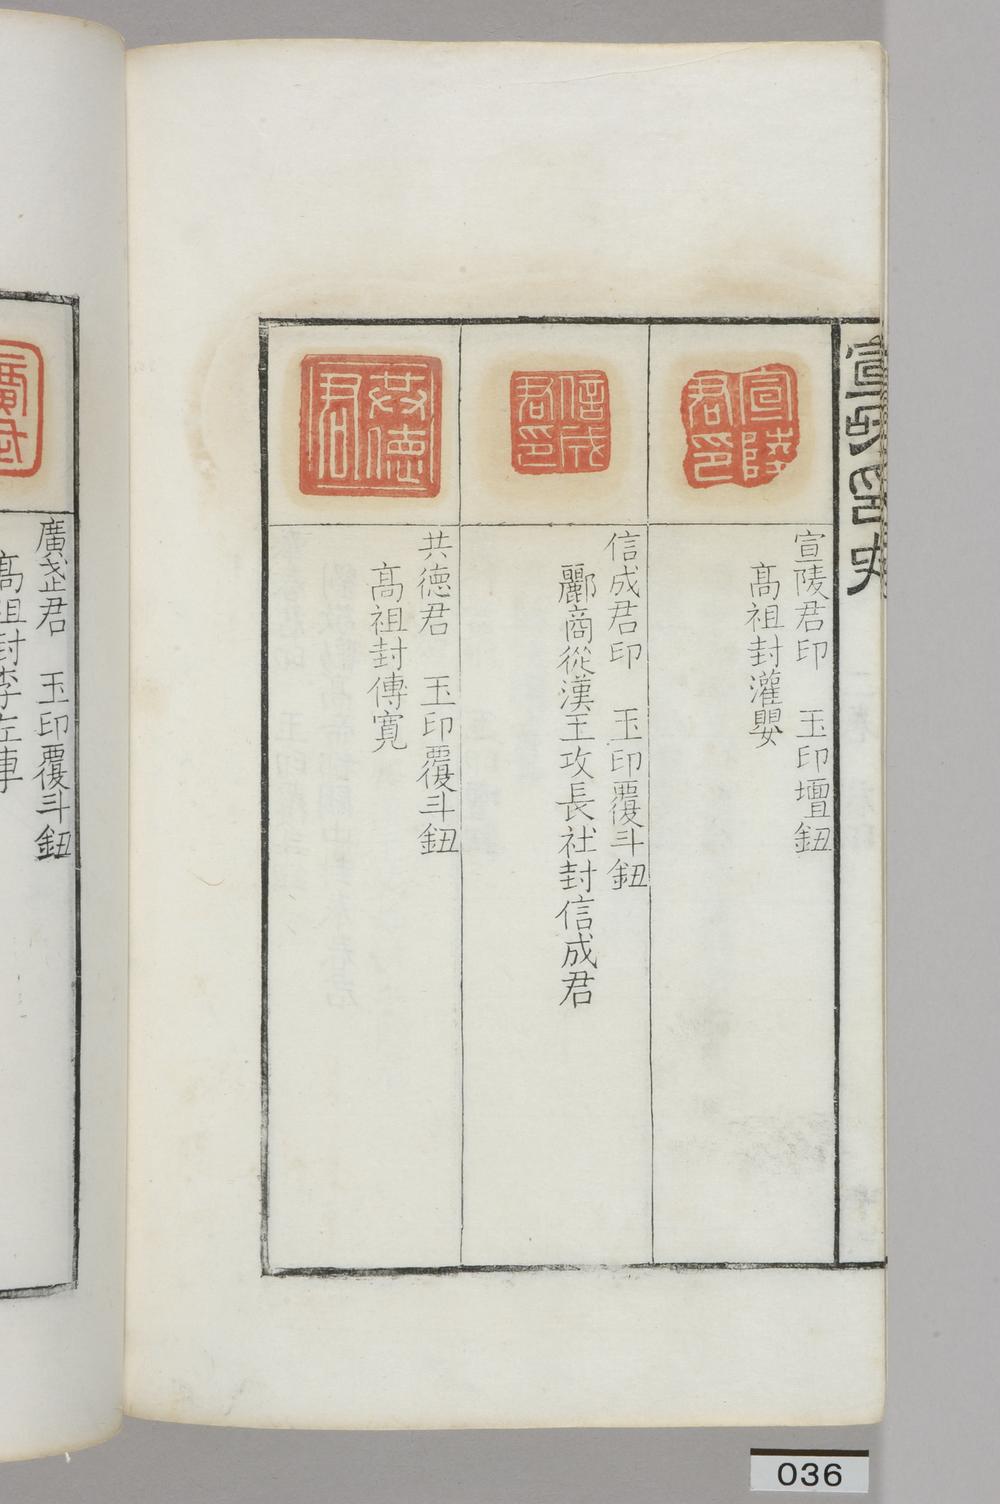 宣氏印史
宣陵君印
宣陵君印　玉印壇鈕
高祖封灌嬰
信成君印
信成君印　玉印覆斗鈕
酈商從漢王攻長社封信成君
共德君
共德君　玉印覆斗鈕
高祖封傅寬
廣武
廣武君　玉印覆斗鈕
高祖封李左車
036